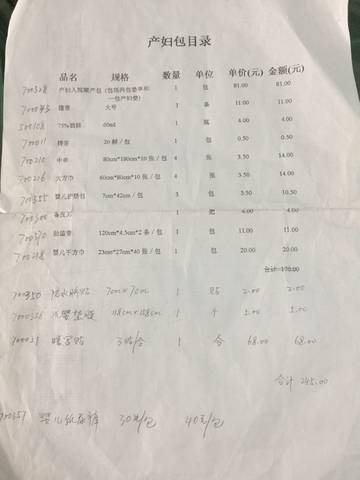 产妇包目录
品名 规格 数量 单位 单价(元) 金额(元)
700328 产妇入院顺产包 (包括两包垫单和一包产妇垫) 1 包 81.00 81.00
腰带 大号 1 条 11.00 11.00
75%酒精 60ml 1 瓶 4.00 4.00
700011 棉签 20根/包 1 包 0.50 0.50
700215 中单 80cm*180cm*10张/包 4 张 3.50 14.00
700216 六方巾 60cm*80cm*10张/包 4 张 3.50 14.00
700355 婴儿护脐包 7cm*42cm/包 3 包 3.50 10.50
700300 备皮刀 1 把 6.00 4.00
700370 胎监带 120cm*4.5cm*2条/包 1 包 11.00 11.00
婴儿干方巾 23cm*27cm*40张/包 1 包 20.00 20.00
合计 170.00
700350 防水脐贴 7cm×7cm 1 贴 2.00 2.00
1 个 5.00 5.00
700031 暖宫贴 3贴/合 1 合 68.00 68.00
合计 245.00
700351 婴儿纸尿裤 30片/包 40元/包